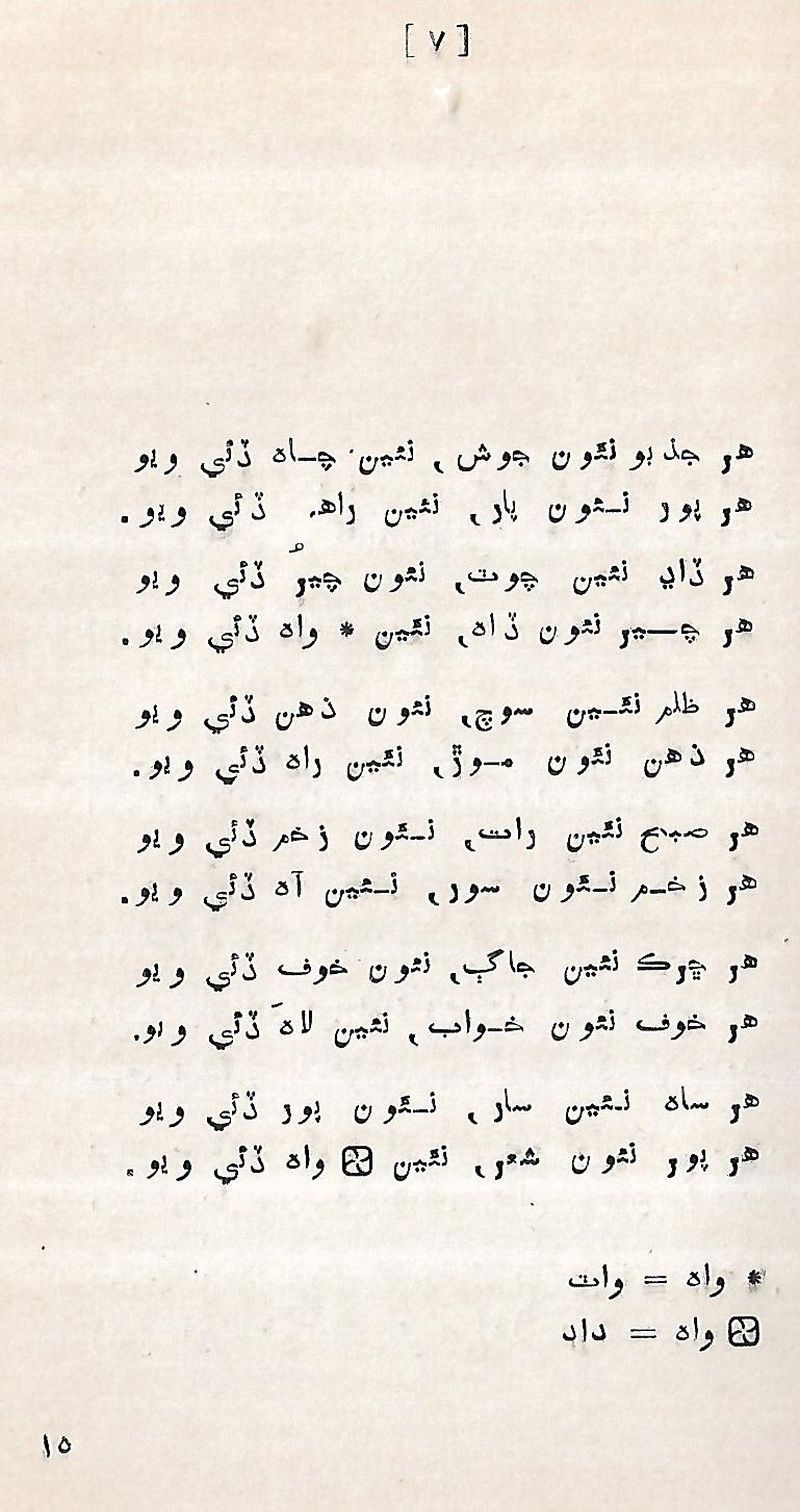 [ ٧ ]
هر جذبو نئون جوش, نئين چاه ڏئي ويو
هر پور نئون پار, نئين راهہ ڏئي ويو.
هر ڏاڍ نئين چوٽ, نئون چيرُ ڏئي ويو
هر چير نئون ڏاه, نئين * واه ڏئي ويو.
هر ظلم نئين سوچ, نئون ذهن ڏئي ويو
هر ذهن نئون موڙ, نئين راه ڏئي ويو.
هر صبح نئين رات, نئون زخم ڏئي ويو
هر زخم نئون سور, نئين آه ڏئي ويو.
هر ڇرڪ نئين جاڳ, نئون خوف ڏئي ويو
هر خوف نئون خواب, نئين لاهَ ڏئي ويو.
هر ساه نئين سار, نئون پور ڏئي ويو
هر پور نئون شعر, نئين واه ڏئي ويو.
* واه = واٽ
واه = داد
١٥